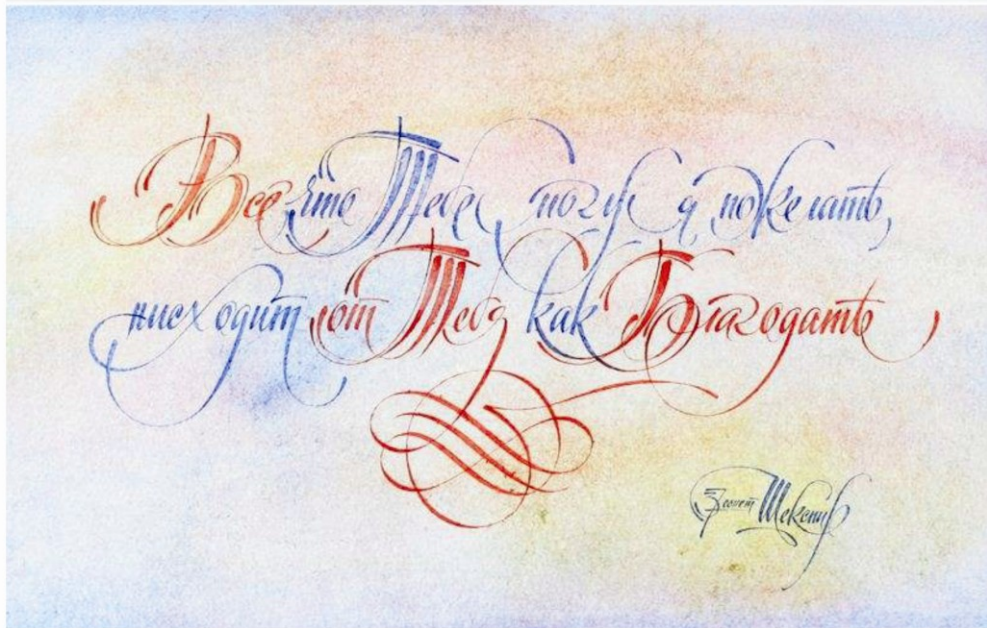 Всё что Тебе могу я пожелать,
нисходит от Тебя как Благодать
Сонет Шекспир